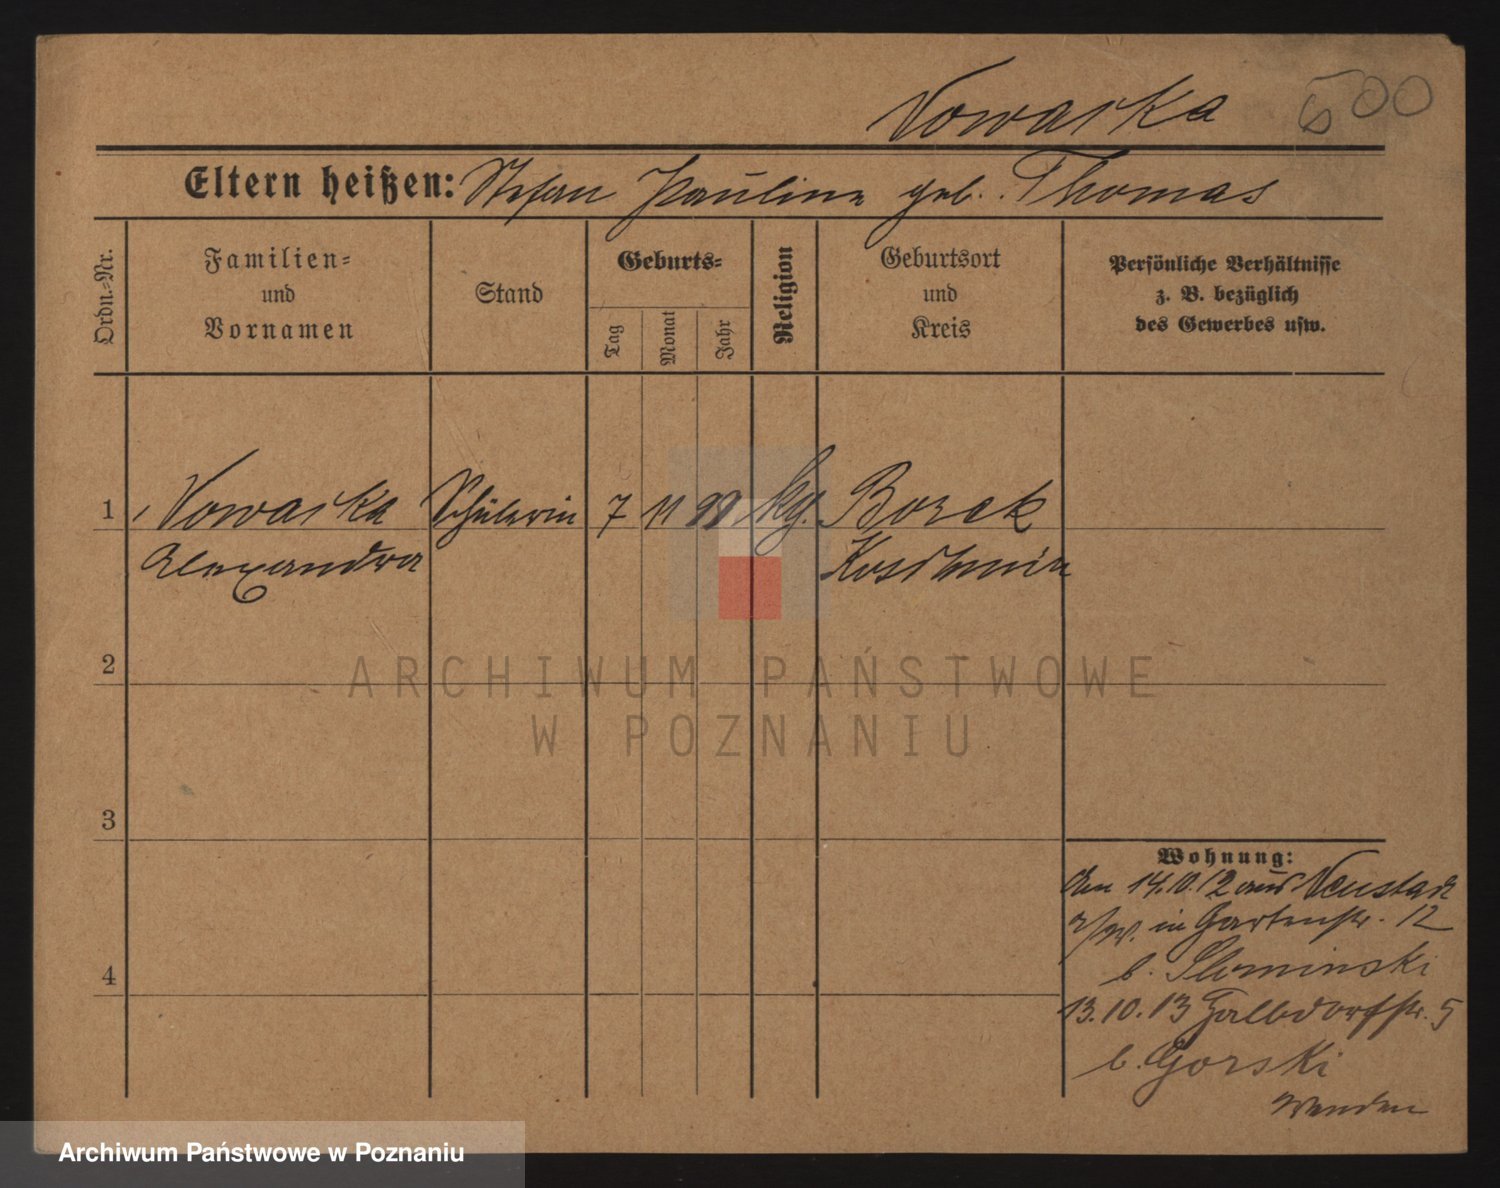 Nowacka
500
Eltern heißen: Stefan Pauline geb. Thomas
Ordn.-Nr.
Familien-
und
Vornamen
Stand
Geburts-
Tag
Monat
Jahr
Religion
Geburtsort
und
Kreis
Persönliche Verhältnisse
z. B. bezüglich
des Gewerbes usw.
1 Nowacka Schülerin 7 11 98 kg. Borek
Alexandra Koschmin
2
3
4
Wohnung:
den 14.10.12 aus Neustadt
a/W. in Gartenstr. 12
b. Slominski
13.10.13 Halbdorfstr. 5
b. Gorski
wenden
ARCHIWUM PAŃSTWOWE
W POZNANIU
Archiwum Państwowe w Poznaniu